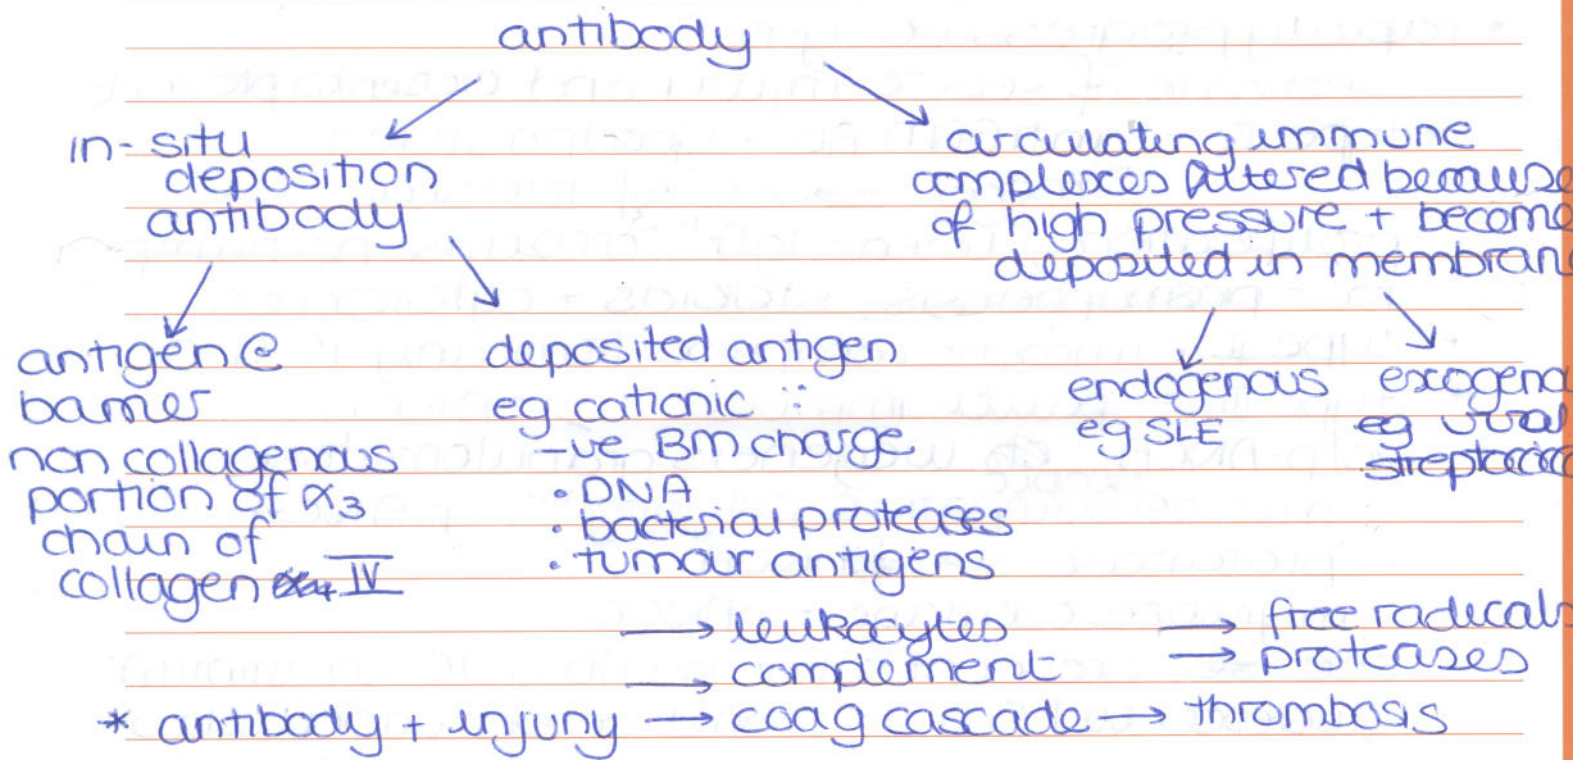 antibody
in-situ
deposition
antibody
circulating immune
complexes filtered because
of high pressure + become
deposited in membran
antigen @
barrier
non collagenous
portion of α3
chain of
collagen IV
deposited antigen
eg cationic ∵
-ve BM charge
• DNA
• bacterial proteases
• tumour antigens
endogenous
eg SLE
exogeno
eg viral
streptococc
→ leukocytes → free radicals
→ complement → proteases
* antibody + injury → coag cascade → thrombosis